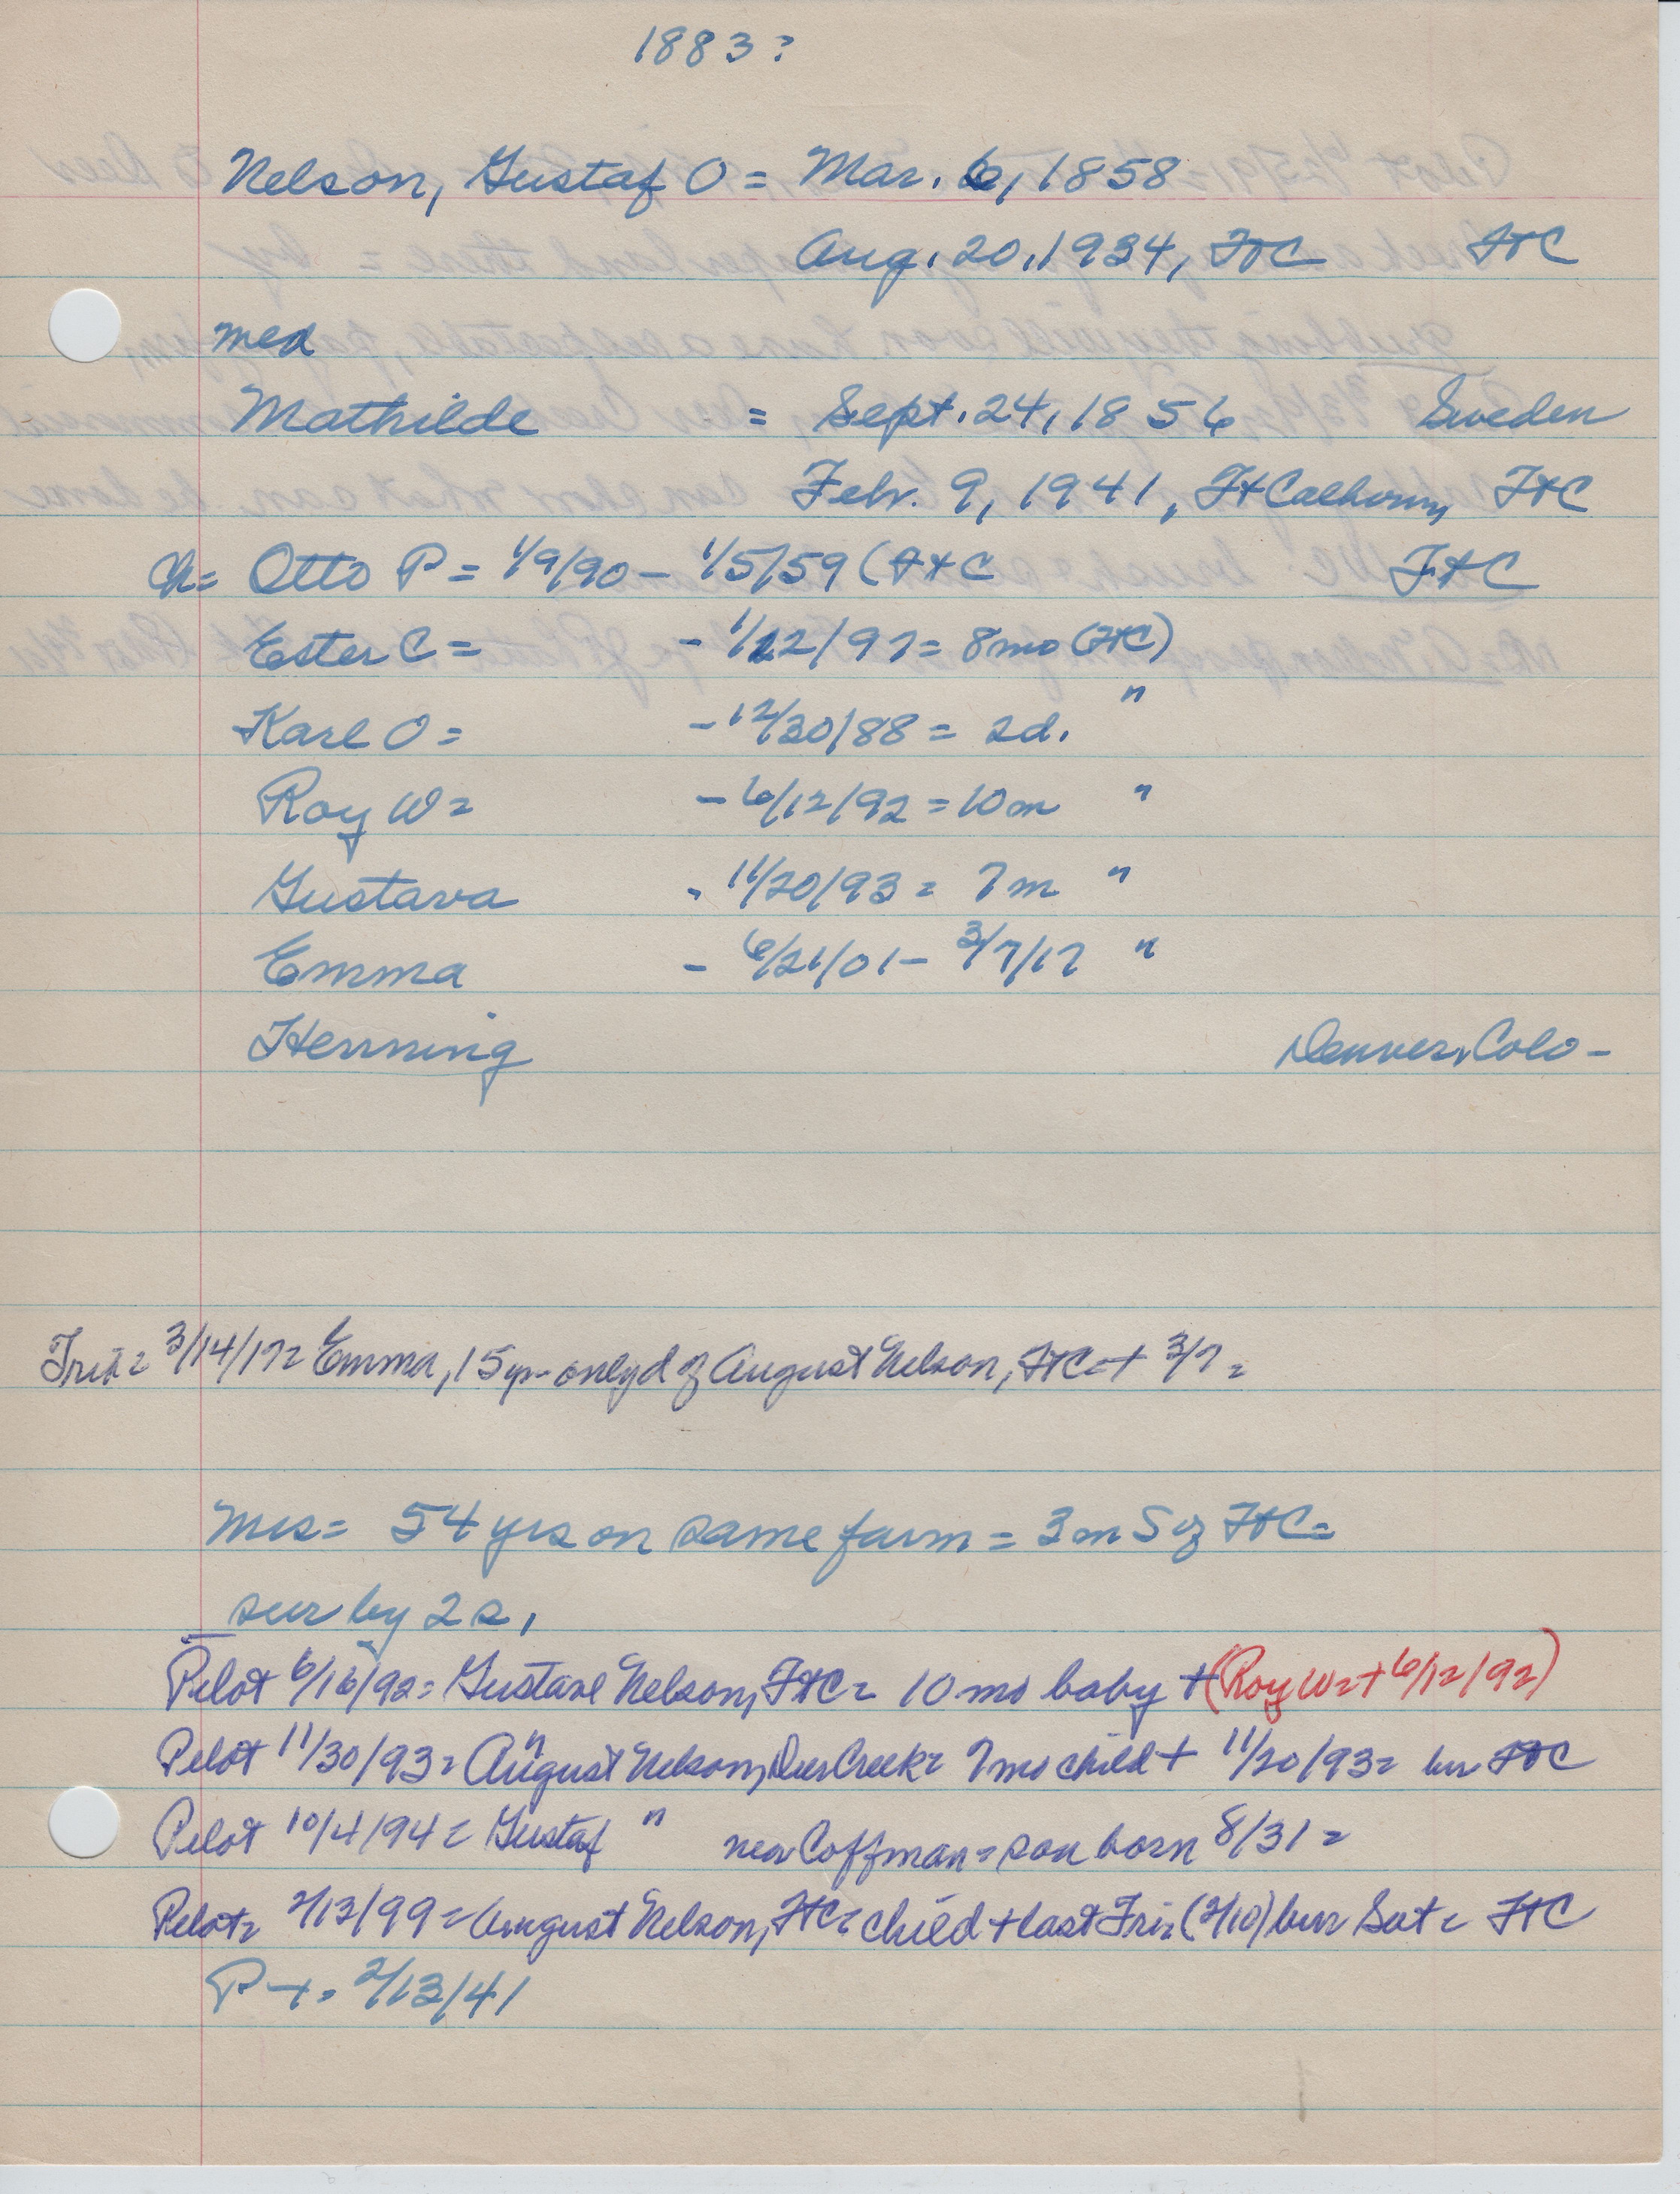 1883?
Nelson, Gustaf O = Mar. 6, 1858
Aug. 20, 1934, FtC FtC
med
Mathilde = Sept. 24, 1856 Sweden
Febr. 9, 1941, Ft Calhoun, FtC
Ch= Otto P = 1/9/90 - 1/5/59 (FtC FtC
Ester C = - 1/22/97 = 8mo (FtC)
Karl O = - 12/30/88 = 2d. "
Roy W = - 6/12/92 = 10m "
Gustava - 11/20/93 = 7m "
Emma - 6/21/01 - 3/7/17 "
Henning Denver, Colo -
Trib = 3/14/17 = Emma, 15yr - only d of August Nelson, FtC = + 3/7 =
Mrs = 54 yrs on same farm = 3m S of FtC =
sur by 2 s,
Pilot 6/16/92 = Gustave Nelson, FtC = 10 mo baby + (Roy W = + 6/12/92)
Pilot 11/30/93 = August Nelson, Deer Creek = 7 mo child + 11/20/93 = bur FtC
Pilot 10/4/94 = Gustaf " near Coffman = son born 8/31 =
Pilot = 2/13/99 = August Nelson, FtC = child + last Fri = (2/10) bur Sat = FtC
P - + = 2/13/41